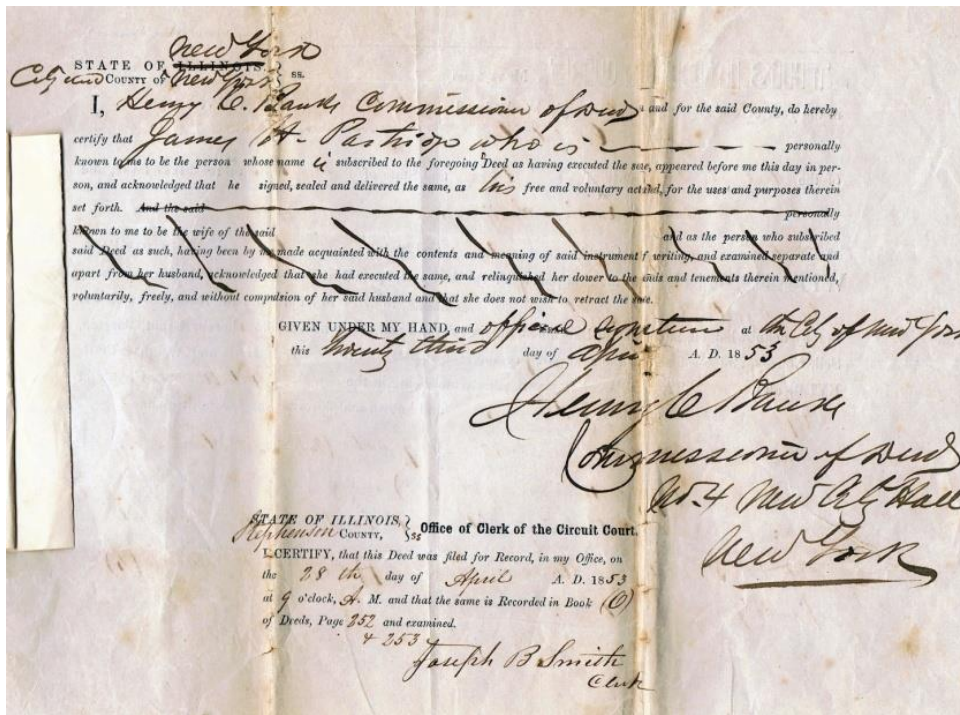 New York
STATE OF ILLINOIS, } ss.
City and COUNTY OF New York
I, Henry C. Banks Commissioner of Deeds in and for the said County, do hereby
certify that James H. who is personally
known to me to be the person whose name is subscribed to the foregoing Deed as having executed the same, appeared before me this day in per-
son, and acknowledged that he signed, sealed and delivered the same, as his free and voluntary act and, for the uses and purposes therein
set forth. And the said personally
known to me to be the wife of the said and as the person who subscribed
said Deed as such, having been by me made acquainted with the contents and meaning of said instrument f writing, and examined separate and
apart from her husband, acknowledged that she had executed the same, and relinquished her dower to the lands and tenements therein mentioned,
voluntarily, freely, and without compulsion of her said husband and that she does not wish to retract the same.
GIVEN UNDER MY HAND, and official signature at the City of New York
this Twenty third day of April A. D. 1853
Henry C Banks
Commissioner of Deeds
No. 4 New City Hall
New York
STATE OF ILLINOIS, } ss Office of Clerk of the Circuit Court.
Stephenson COUNTY,
I CERTIFY, that this Deed was filed for Record, in my Office, on
the 28th day of April A. D. 1853
at 9 o'clock, A. M. and that the same is Recorded in Book (O)
of Deeds, Page 252 and examined.
& 253
Joseph B Smith
Clerk